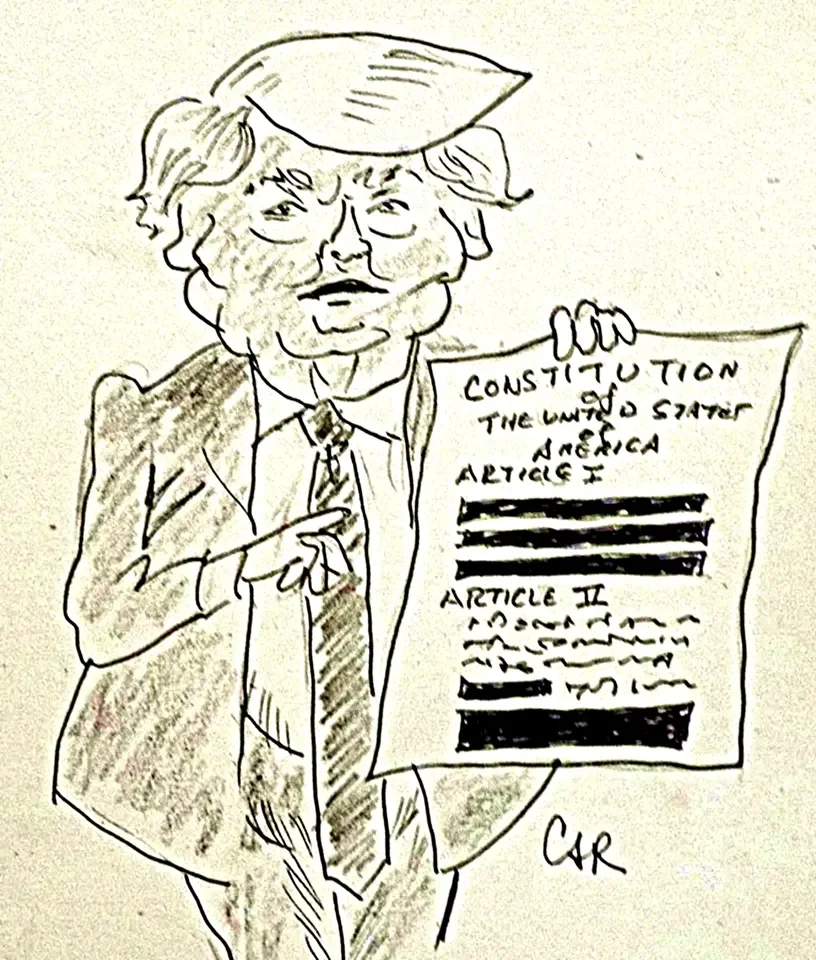 CONSTITUTION
of
THE UNITED STATES
OF
AMERICA
ARTICLE I
ARTICLE II
CAR